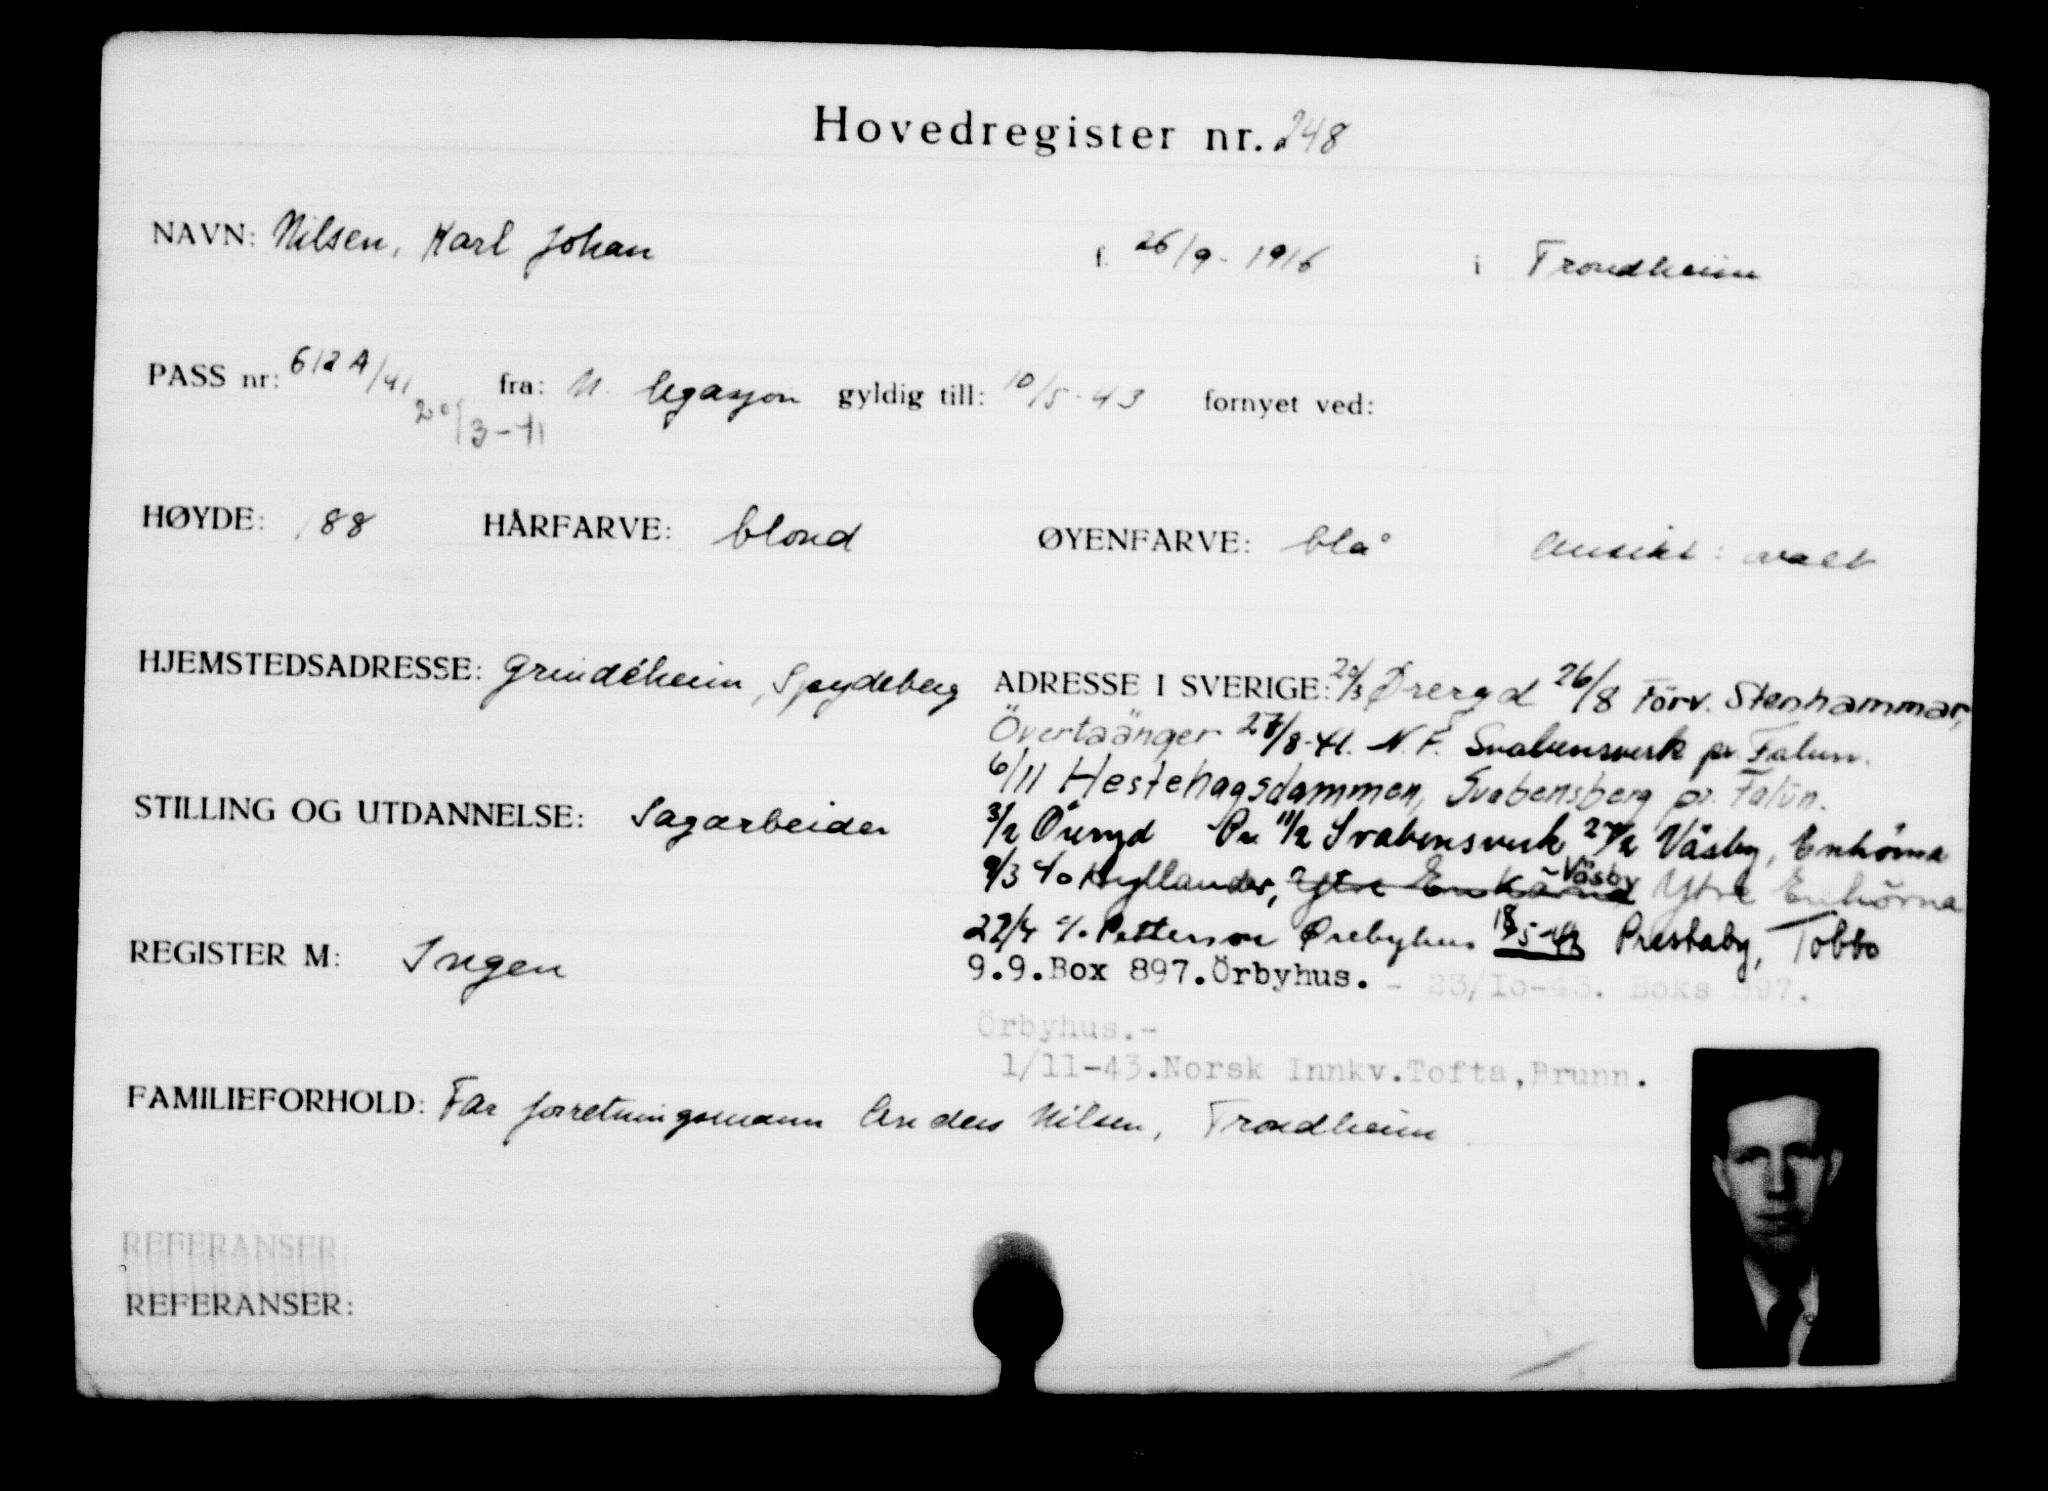 Hovedregister nr. 248
NAVN: Nilsen, Karl Johan f. 26/9-1916 i Trondheim
PASS nr: 612 A/41 fra: N. legasjon gyldig till: 10/5-43 fornyet ved:
20/3-41
HØYDE: 188 HÅRFARVE: blond ØYENFARVE: blå Ansikt: ovalt
HJEMSTEDSADRESSE: Grindeheim, Spydeberg
ADRESSE I SVERIGE: 20/3 Öreryd 26/8 Förv. Stenhammar,
Övertaänger 27/8-41. N.F. Svabensverk pr. Falun.
6/11 Hestehagsdammen, Svabensberg pr. Falun.
STILLING OG UTDANNELSE: Sagarbeider
3/2 Öreryd Pr. 11/2 Svabensverk 27/2 Väsby, Enhörna
9/3 c/o Hyllander, Ytre Enhörna Väsby Ytre Enhörna
REGISTER M: Ingen
22/4 c/o Petterson Ørebyhus 18/5-43 Prestaby, Tobbo
9.9.Box 897.Örbyhus. - 23/10-43. Boks 897.
Örbyhus.-
1/11-43.Norsk Innkv.Tofta,Brunn.
FAMILIEFORHOLD: Far forretningsmann Anders Nilsen, Trondheim
REFERANSER:
REFERANSER: